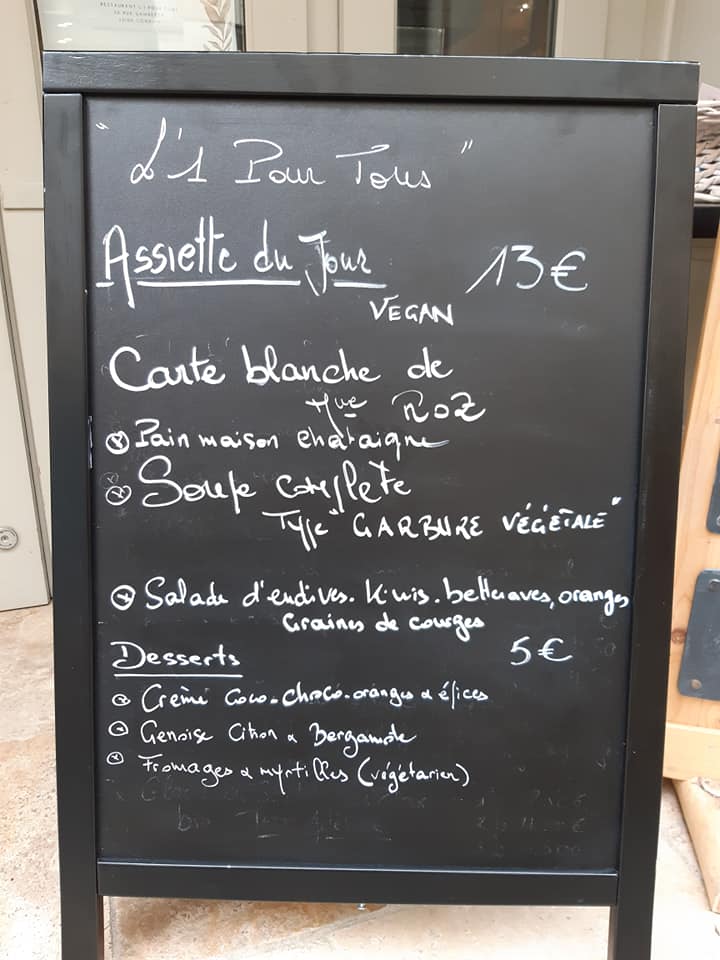 RESTAURANT L'1 POUR TOUS
"L'1 Pour Tous"
Assiette du Jour 13€
VEGAN
Carte blanche de
Mme ROZ
Pain maison chataigne
Soupe complète
Type "GARBURE VÉGÉTALE"
Salade d'endives. Kiwis. betteraves, oranges
Graines de courges
Desserts 5€
Crème Coco-choco-oranges & épices
Genoise Citron & Bergamote
Fromages & myrtilles (végétarien)